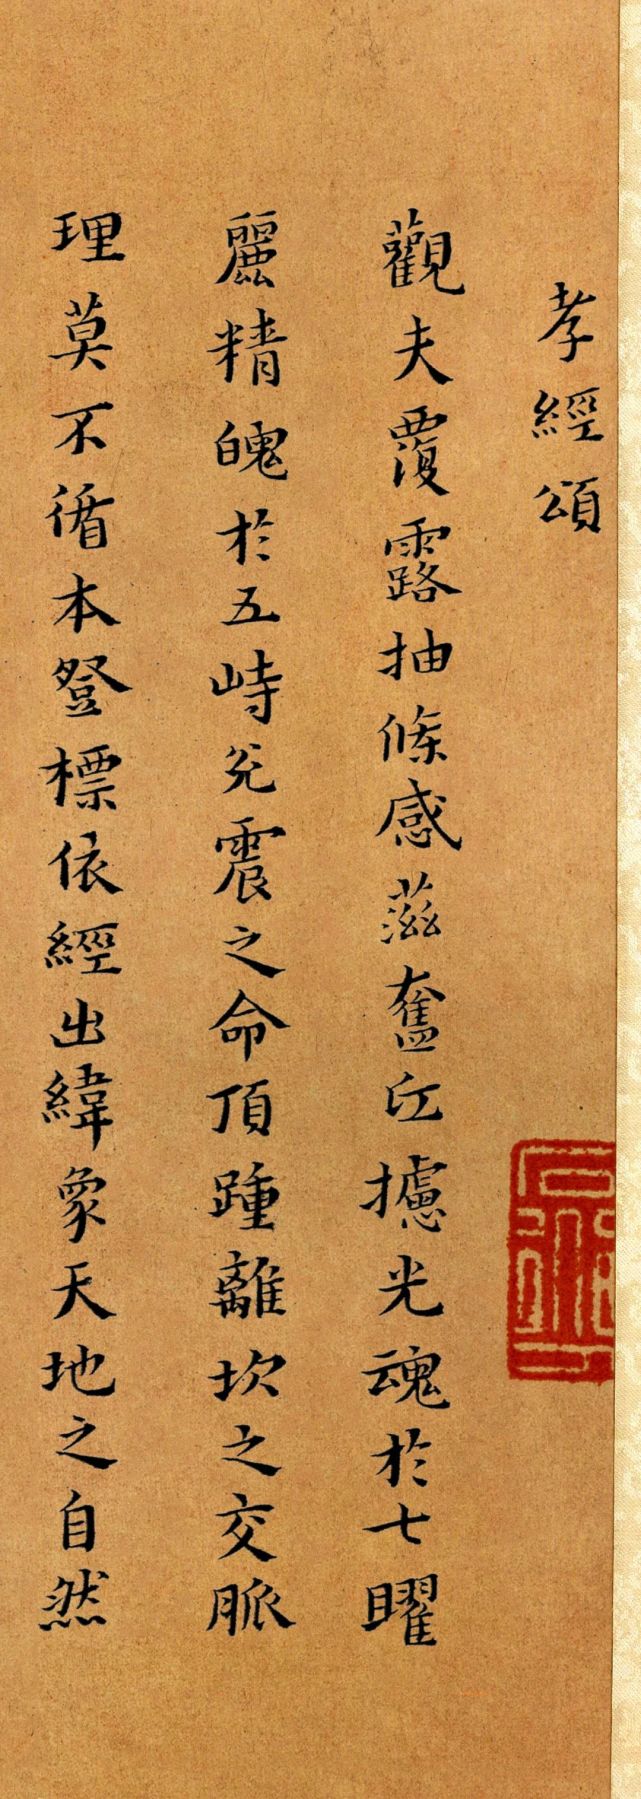 孝經頌
觀夫覆露抽條感滋奮丘攄光魂於七曜
麗精魄於五峙兊震之命頂踵離坎之交脈
理莫不循本登標依經出緯象天地之自然